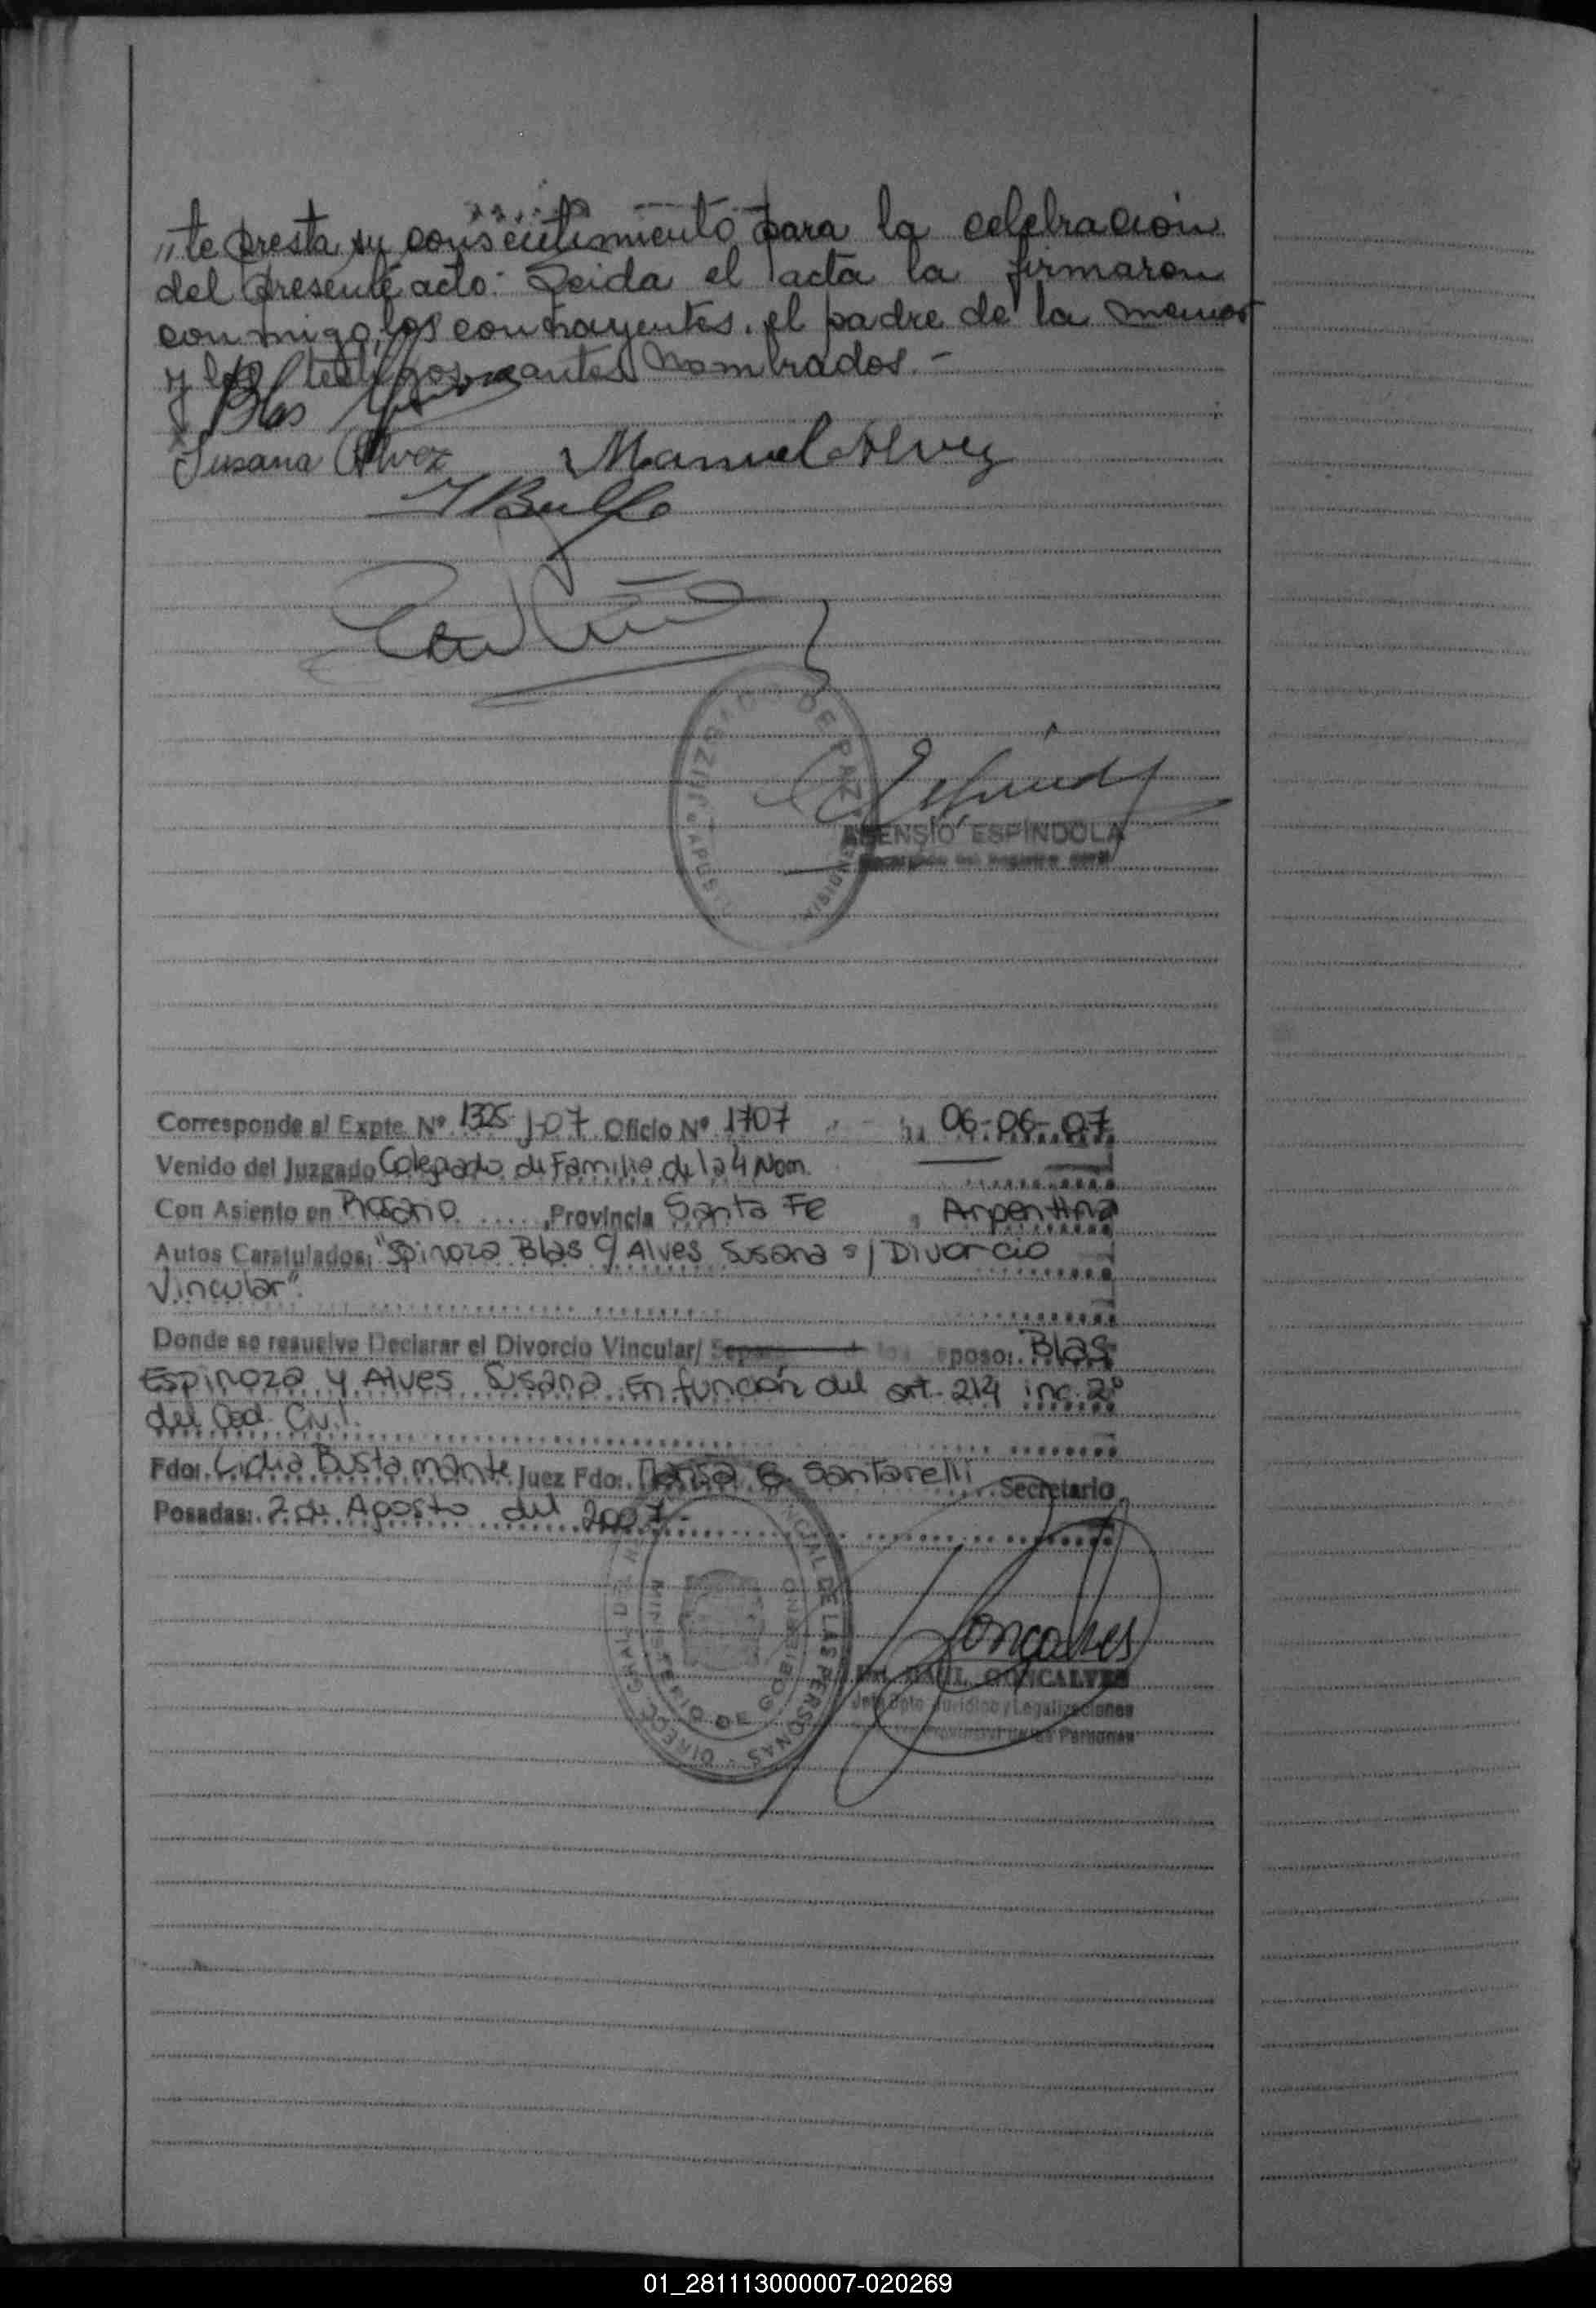 „te presta su consentimiento para la celebración
del presente acto: Leida el acta la firmaron
conmigo, los contrayentes, el padre de la menor
y los testigos antes nombrados.-
Blas
Susana Alvez Manuel Alvez
JUZGADO DE PAZ
APOST MISIONES
ASENSIO ESPINDOLA
Encargado del Registro Civil
Corresponde al Expte. Nº 1325-J-07 Oficio Nº 1707 06-06-07
Venido del Juzgado Colegiado de Familia de la 4 Nom.
Con Asiento en Rosario ,Provincia Santa Fe , Argentina
Autos Caratulados: "Spinoza Blas c/ Alves Susana s/ Divorcio
Vincular".
Donde se resuelve Declarar el Divorcio Vincular/ los esposos: Blas
Espinoza y Alves Susana En función del art. 214 inc. 2º
del Cod. Civil.
Fdo: Lidia Bustamante Juez Fdo: G. Santarelli Secretario
Posadas: 2 de Agosto del 2007.-
DIRECC. GRAL. DEL PROVINCIAL DE LAS PERSONAS
MINISTERIO DE GOBIERNO
Gonçalves
RAUL GONCALVES
Jefe Dpto. Jurídico y Legalizaciones
Provincial de las Personas
01_281113000007-020269